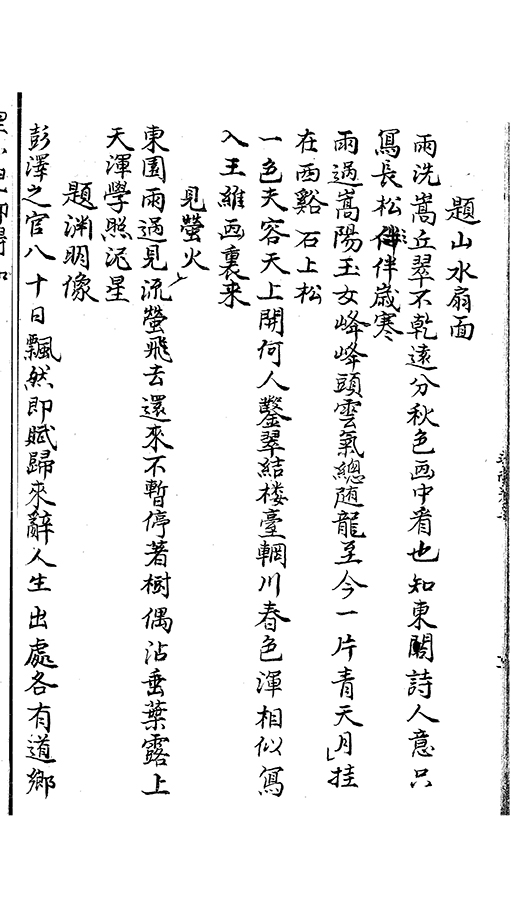 題山水扇面
雨洗嵩丘翠不乾遠分秋色画中看也知東閣詩人意只
寫長松伴歲寒
雨過嵩陽玉女峰峰頭雲氣總随龍至今一片青天月挂
在西谿石上松
一色夫容天上開何人鑿翠結楼臺輞川春色渾相似寫
入王維画裏来
見螢火
東園雨過見流螢飛去還來不暫停著樹偶沾垂葉露上
天渾學照泥星
題渊明像
彭澤之官八十日飄然即賦歸來辭人生出處各有道鄉